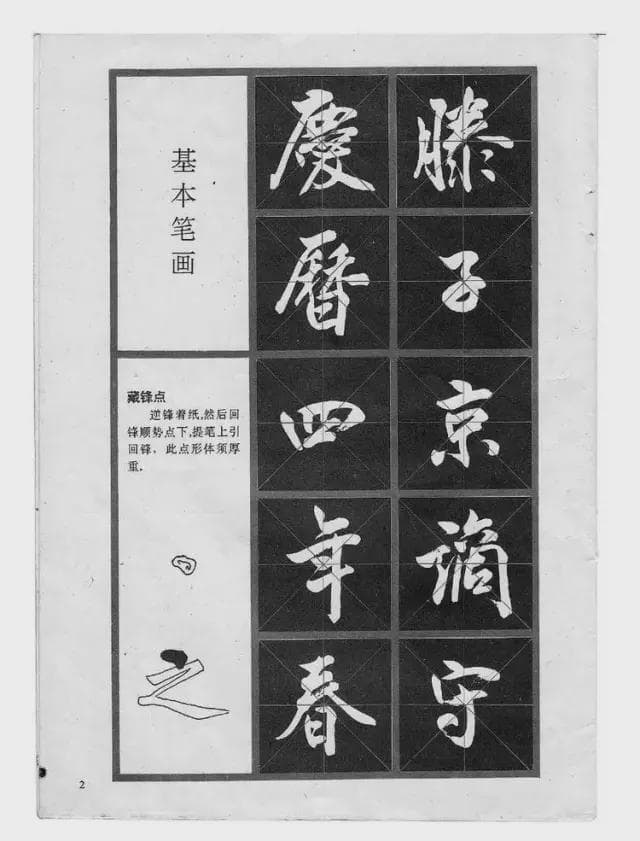 基本笔画
藏锋点
逆锋着纸,然后回
锋顺势点下,提笔上引
回锋。此点形体须厚
重。
之
慶曆四年春
滕子京謫守
2